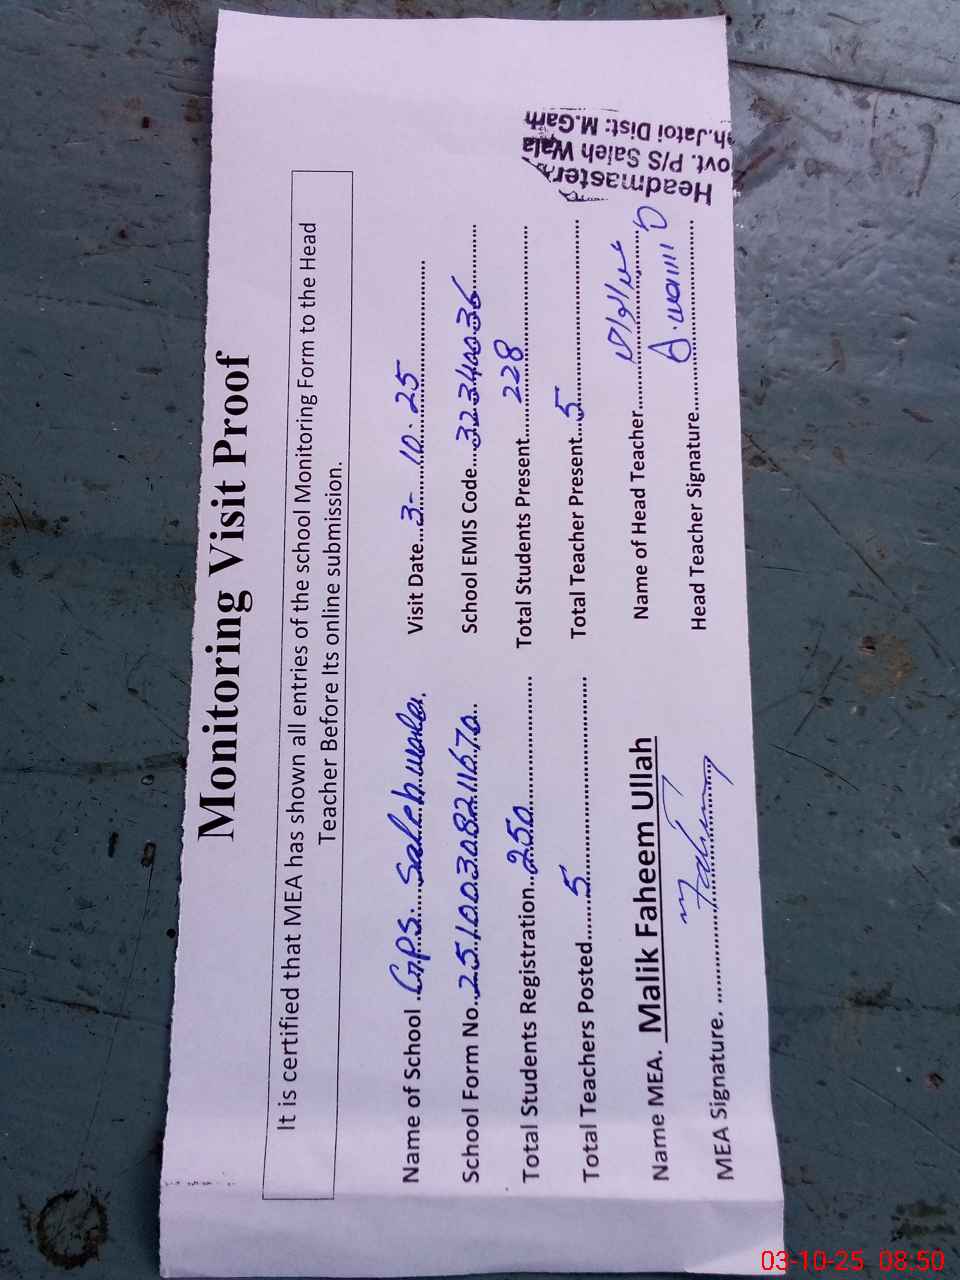 Monitoring Visit Proof
It is certified that MEA has shown all entries of the school Monitoring Form to the Head
Teacher Before Its online submission.
Name of School G.P.S. Saleh wala. Visit Date 3-10-25
School Form No. 2510030821167 School EMIS Code 32340036
Total Students Registration 250 Total Students Present 228
Total Teachers Posted 5 Total Teacher Present 5
Name MEA. Malik Faheem Ullah Name of Head Teacher
MEA Signature. Faheem Head Teacher Signature
Headmaster
ovt. P/S Saleh Wala
eh.Jatoi Dist: M.Garh
03-10-25 08:50